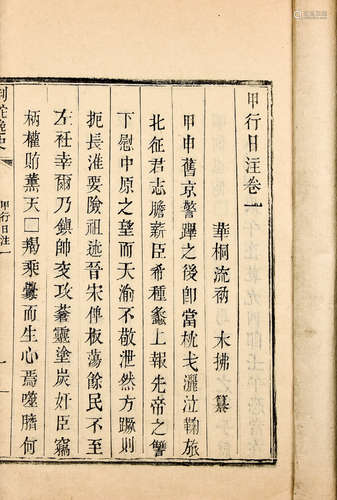 甲行日注卷一
華桐流衲 木拂 纂
甲申舊京警蹕之後卽當枕戈灑泣鞠旅
北征君志膽薪臣希種蠡上報先帝之讐
下慰中原之望而天渝不敬泄然方蹶則
扼長淮要險祖逖晉宋俾板蕩餘民不至
左衽幸爾乃鎭帥交攻蒼靈塗炭奸臣竊
柄權賄薰天□羯乘釁而生心焉噬臍何
逸史
甲行日注
一